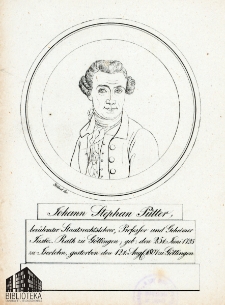 Johann Stephan Pütter,
berühmter Staatsrechtslehrer, Professor und Geheimer
Justiz-Rath zu Göttingen; geb. den 25t. Juni 1725
zu Iserlohn, gestorben den 12t. Aug. 1807 zu Göttingen.
BIBLIOTEKA